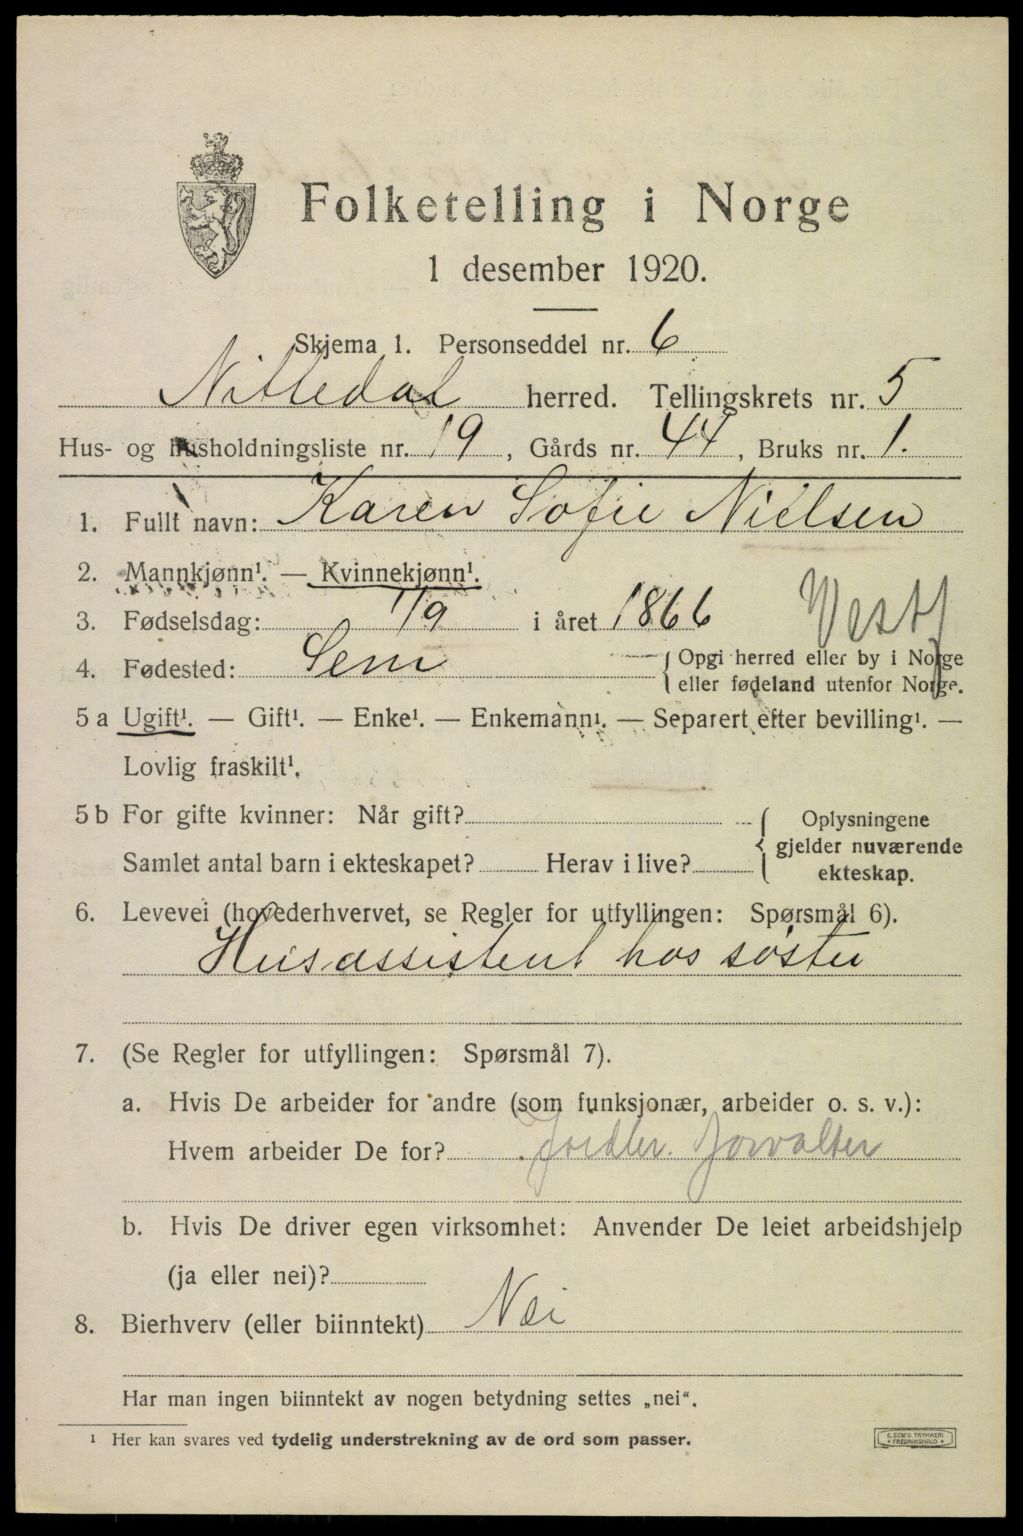 Folketelling i Norge
1 desember 1920.
Skjema 1. Personseddel nr. 6
Nittedal herred. Tellingskrets nr. 5
Hus- og husholdningsliste nr. 19, Gårds nr. 44, Bruks nr. 1.
1. Fullt navn: Karen Sofie Nielsen
2. Mannkjønn¹. — Kvinnekjønn¹.
3. Fødselsdag: 1/9 i året 1866
Vestf
4. Fødested: Sem { Opgi herred eller by i Norge
eller fødeland utenfor Norge.
5 a Ugift¹. — Gift¹. — Enke¹. — Enkemann¹. — Separert efter bevilling¹. —
Lovlig fraskilt¹.
5 b For gifte kvinner: Når gift?
Samlet antal barn i ekteskapet? Herav i live?
Oplysningene
gjelder nuværende
ekteskap.
6. Levevei (hovederhvervet, se Regler for utfyllingen: Spørsmål 6).
Husassistent hos søster
7. (Se Regler for utfyllingen: Spørsmål 7).
a. Hvis De arbeider for andre (som funksjonær, arbeider o. s. v.):
Hvem arbeider De for? forvalter
b. Hvis De driver egen virksomhet: Anvender De leiet arbeidshjelp
(ja eller nei)?
8. Bierhverv (eller biinntekt) Nei
Har man ingen biinntekt av nogen betydning settes „nei“.
¹ Her kan svares ved tydelig understrekning av de ord som passer.
E. SEM'S TRYKKERI
FREDRIKSHALD